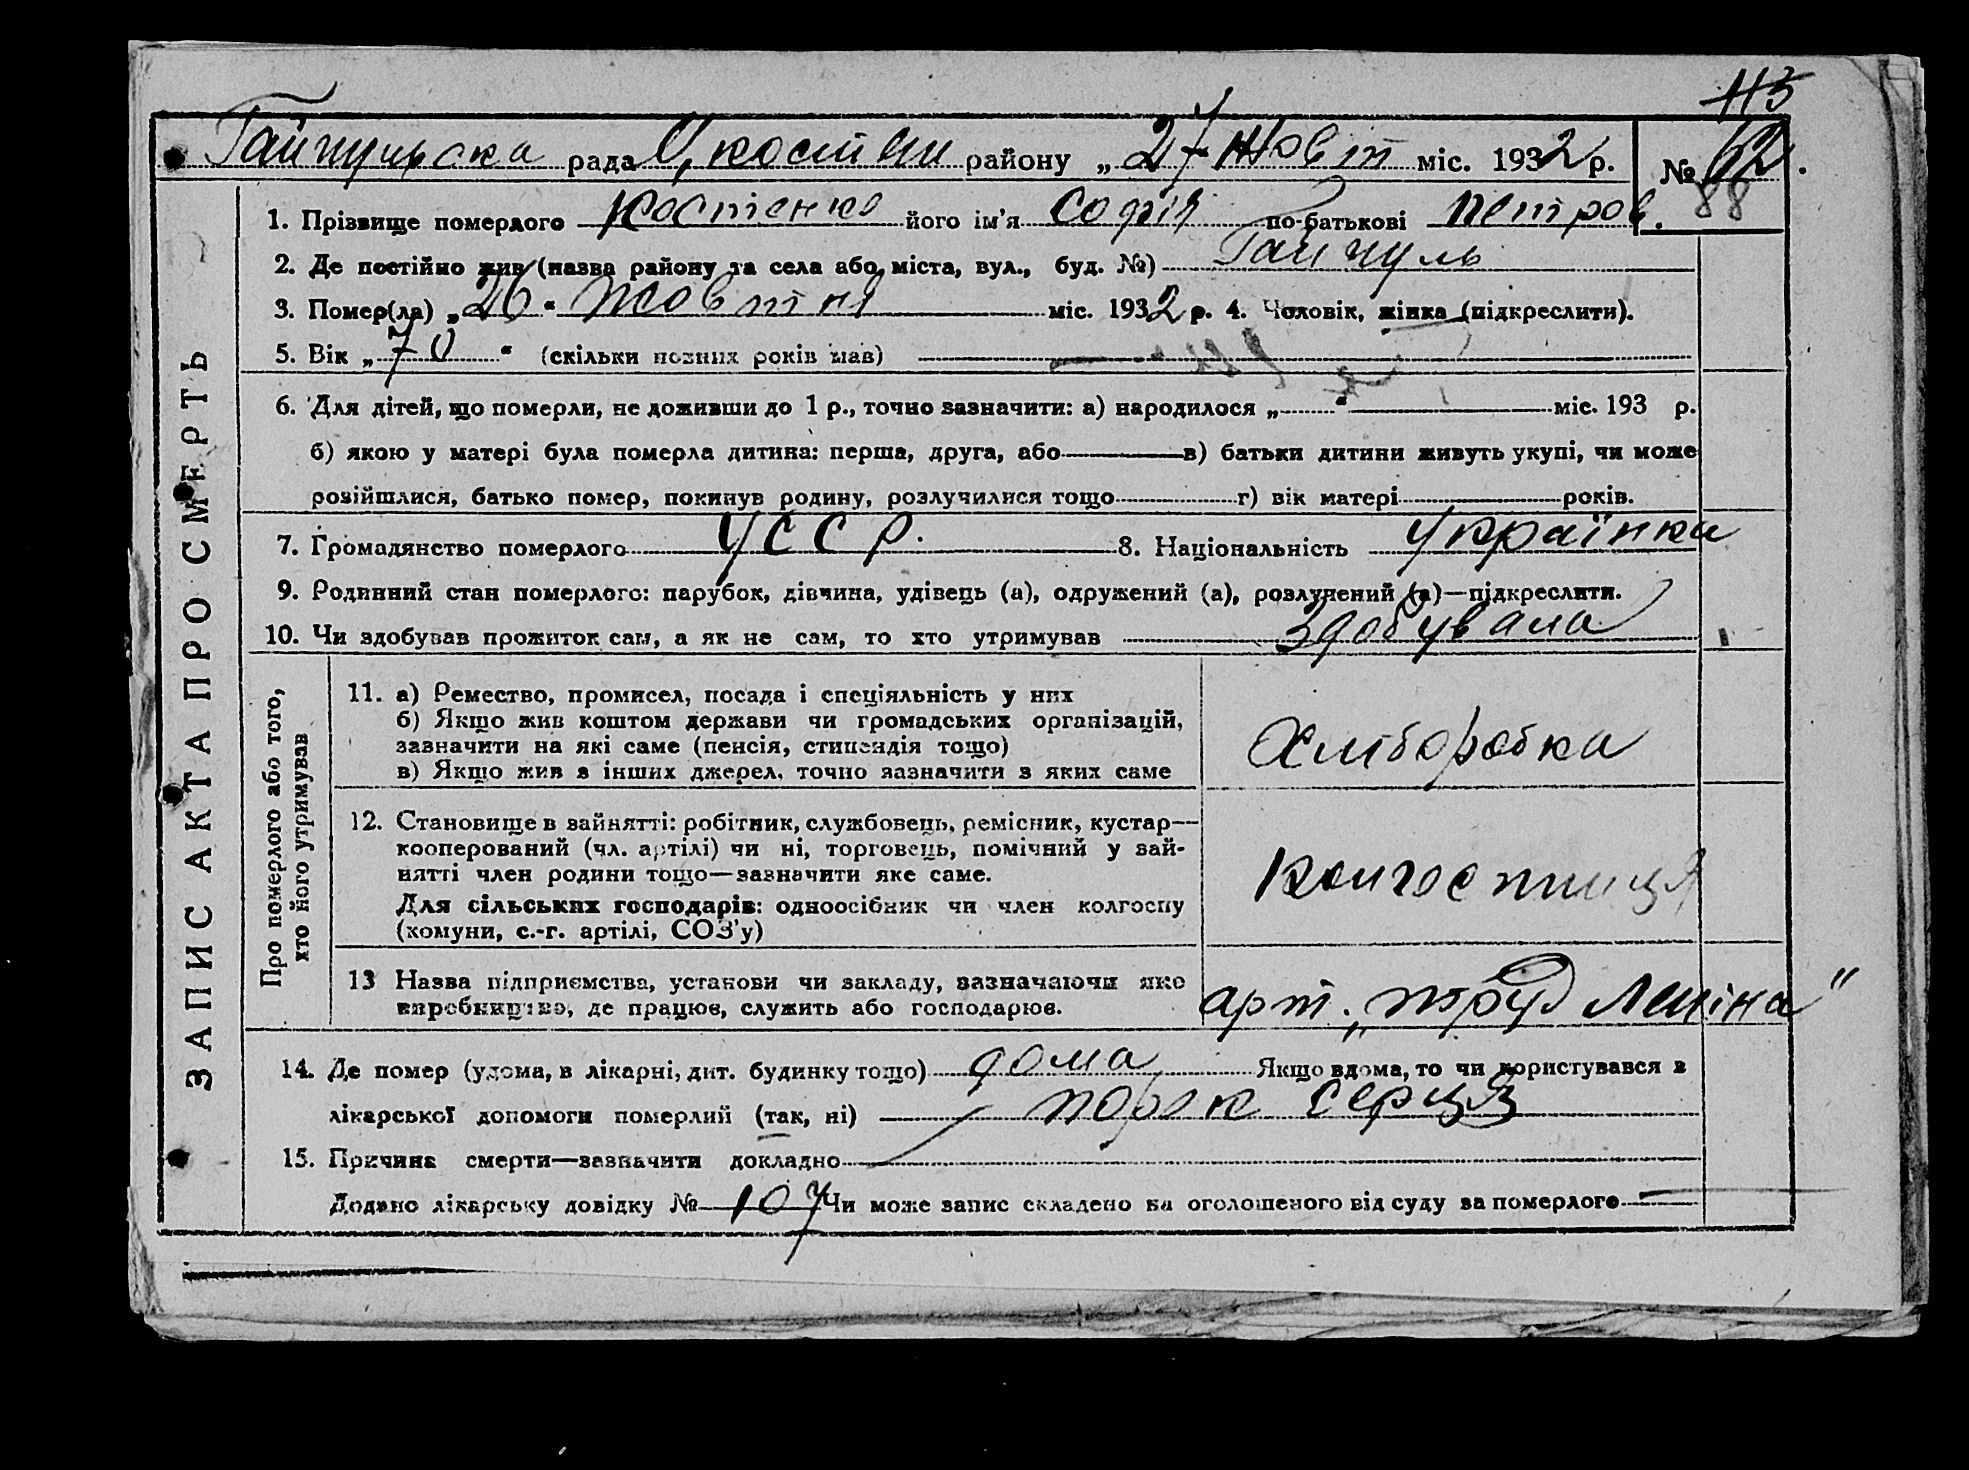 113
Гайчульська рада О, костян району „ 27 Жовт міс. 1932 р. № 62.
88
1. Прізвище померлого Костенко його ім'я Софія по-батькові Петров.
2. Де постійно жив (назва району та села або міста, вул., буд. №) Гайчуль
3. Помер(ла) „ 26 “ Жовтня міс. 1932 р. 4. Чоловік, жінка (підкреслити).
5. Вік „ 70 “ (скільки повних років мав)
6. Для дітей, що померли, не доживши до 1 р., точно зазначити: а) народилося „ “ міс. 193 р.
б) якою у матері була померла дитина: перша, друга, або в) батьки дитини живуть укупі, чи може
розійшлися, батько помер, покинув родину, розлучилися тощо г) вік матері років.
7. Громадянство померлого УССР. 8. Національність Українка
9. Родинний стан померлого: парубок, дівчина, удівець (а), одружений (а), розлучений (а)—підкреслити.
10. Чи здобував прожиток сам, а як не сам, то хто утримував Здобувала
ЗАПИС АКТА ПРО СМЕРТЬ
Про померлого або того,
хто його утримував
11. а) Ремество, промисел, посада і спеціяльність у них
б) Якщо жив коштом держави чи громадських організацій,
зазначити на які саме (пенсія, стипендія тощо)
в) Якщо жив з інших джерел, точно зазначити з яких саме
Хліборобка
12. Становище в зайнятті: робітник, службовець, ремісник, кустар—
кооперований (чл. артілі) чи ні, торговець, помічний у зай-
нятті член родини тощо—зазначити яке саме.
Для сільських господарів: одноосібник чи член колгоспу
(комуни, с.-г. артілі, СОЗ'у)
Колгоспниця
13 Назва підприємства, установи чи закладу, зазначаючи яке
виробництво, де працює, служить або господарює.
арт. „Труд Леніна“
14. Де помер (удома, в лікарні, дит. будинку тощо) дома Якщо вдома, то чи користувався з
лікарської допомоги померлий (так, ні) порок серця
15. Причина смерти—зазначити докладно
Додано лікарську довідку № 107 Чи може запис складено на оголошеного від суду за померлого